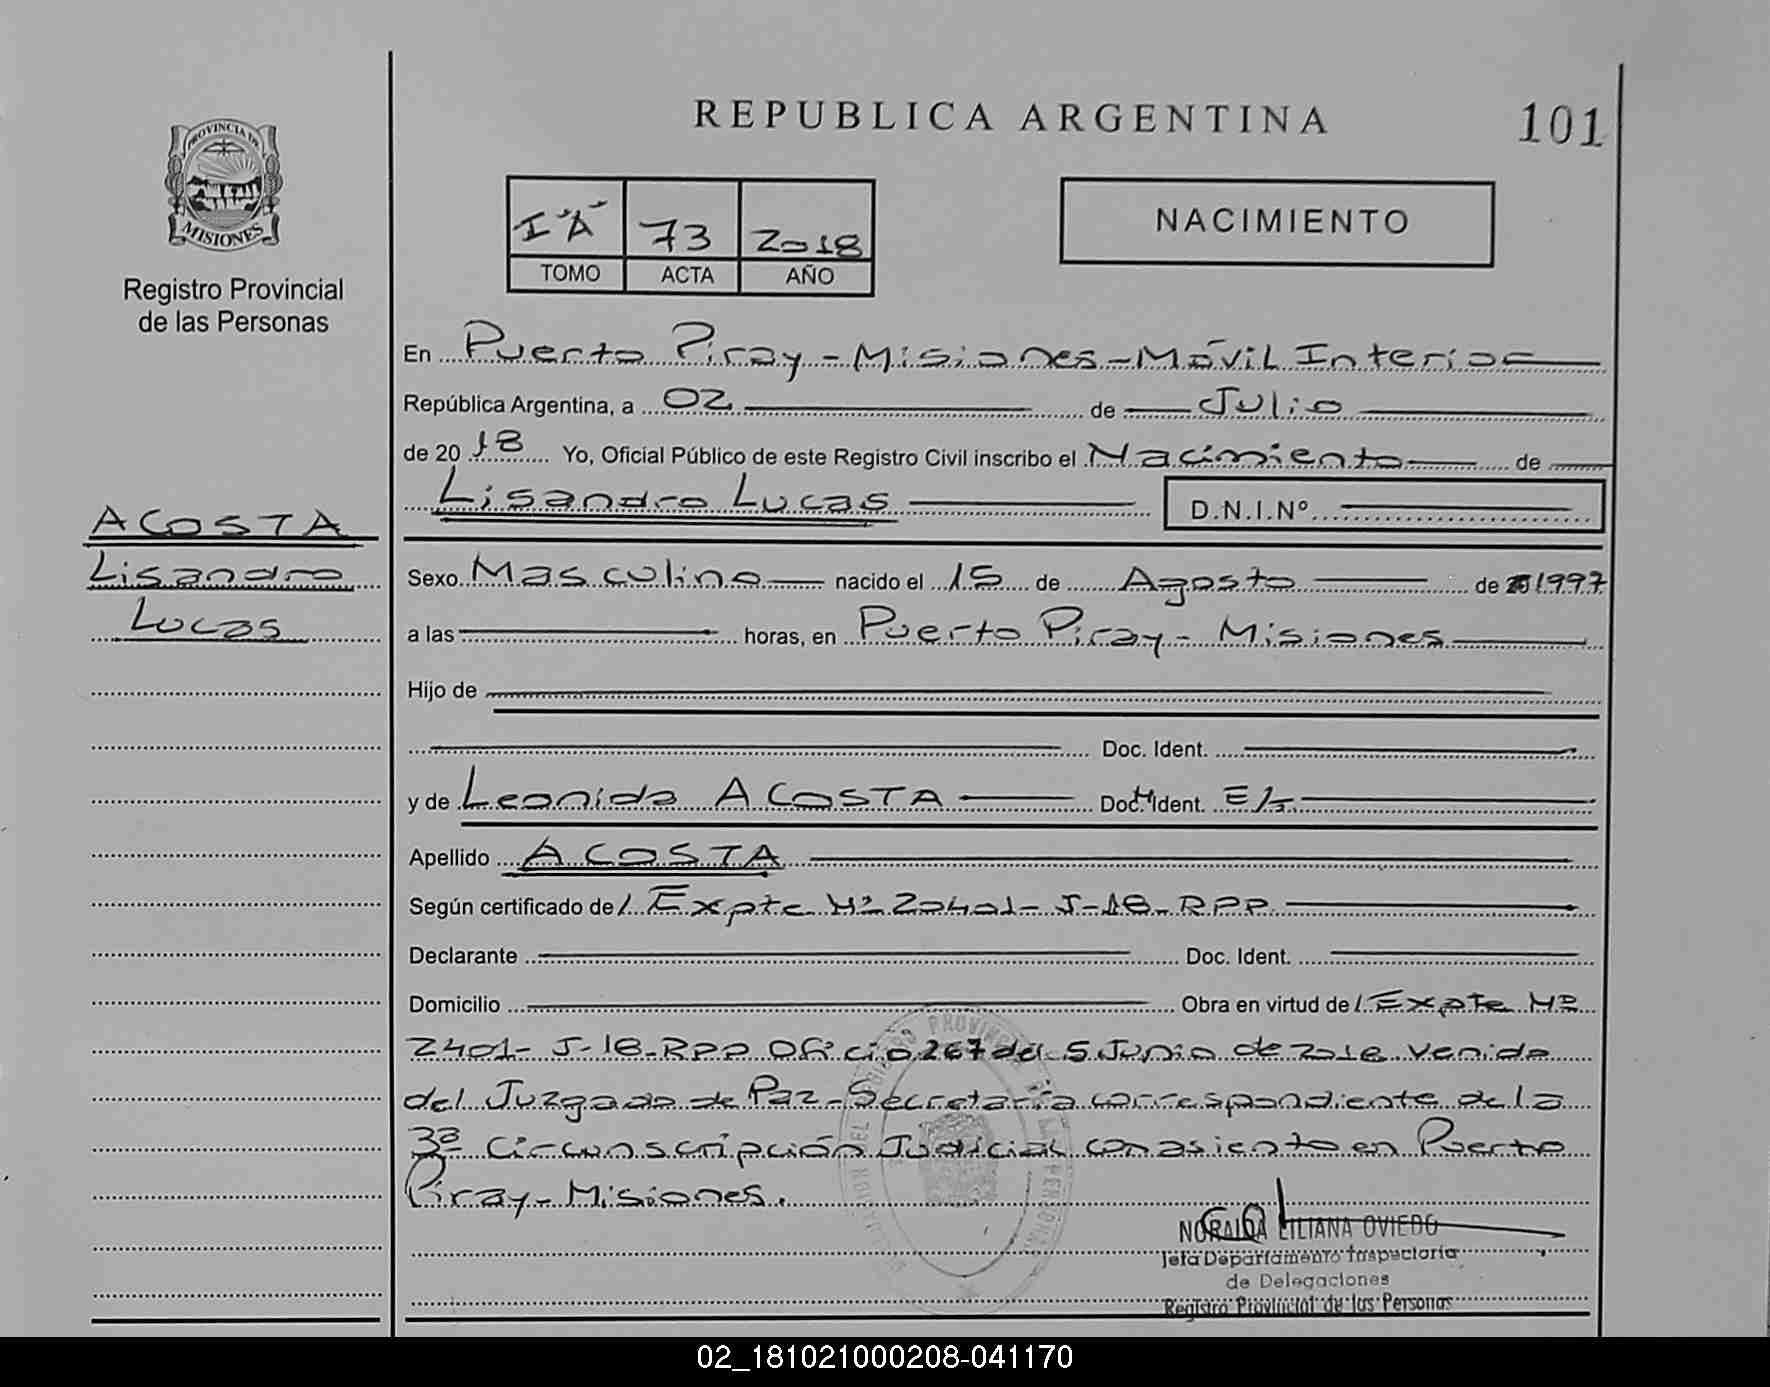 REPUBLICA ARGENTINA
101
PROVINCIA DE
MISIONES
Registro Provincial
de las Personas
I "A" 73 2018
TOMO ACTA AÑO
NACIMIENTO
En Puerto Piray - Misiones - Móvil Interior
República Argentina, a 02 de Julio
de 2018 Yo, Oficial Público de este Registro Civil inscribo el Nacimiento de
Lisandro Lucas D.N.I.Nº
ACOSTA
Lisandro
Lucas
Sexo Masculino nacido el 15 de Agosto de 1997
a las horas, en Puerto Piray - Misiones
Hijo de
Doc. Ident.
y de Leonida ACOSTA Doc. Ident. E/T
Apellido ACOSTA
Según certificado de Expte Nº 2401-J-18-RPP
Declarante Doc. Ident.
Domicilio Obra en virtud de Expte Nº
2401-J-18-RPP Oficio 267 del 5 Junio de 2018 venido
del Juzgado de Paz - Secretaría correspondiente de la
3ª Circunscripción Judicial con asiento en Puerto
Piray - Misiones.
NORAIDA LILIANA OVIEDO
Jefa Departamento Inspectoria
de Delegaciones
Registro Provincial de las Personas
02_181021000208-041170